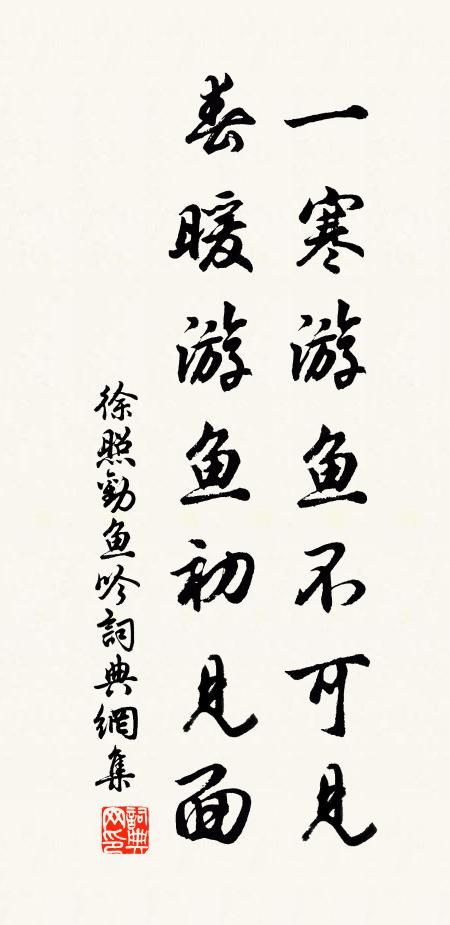 一寒游鱼不可见
春暖游鱼初见面
徐照劝鱼吟词典網集
詞典
网印